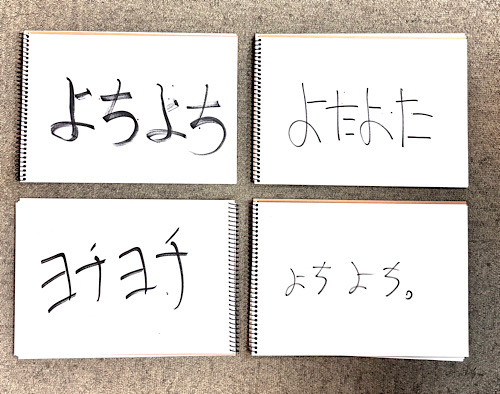 よちよち
よたよた
ヨチヨチ
よちよち。